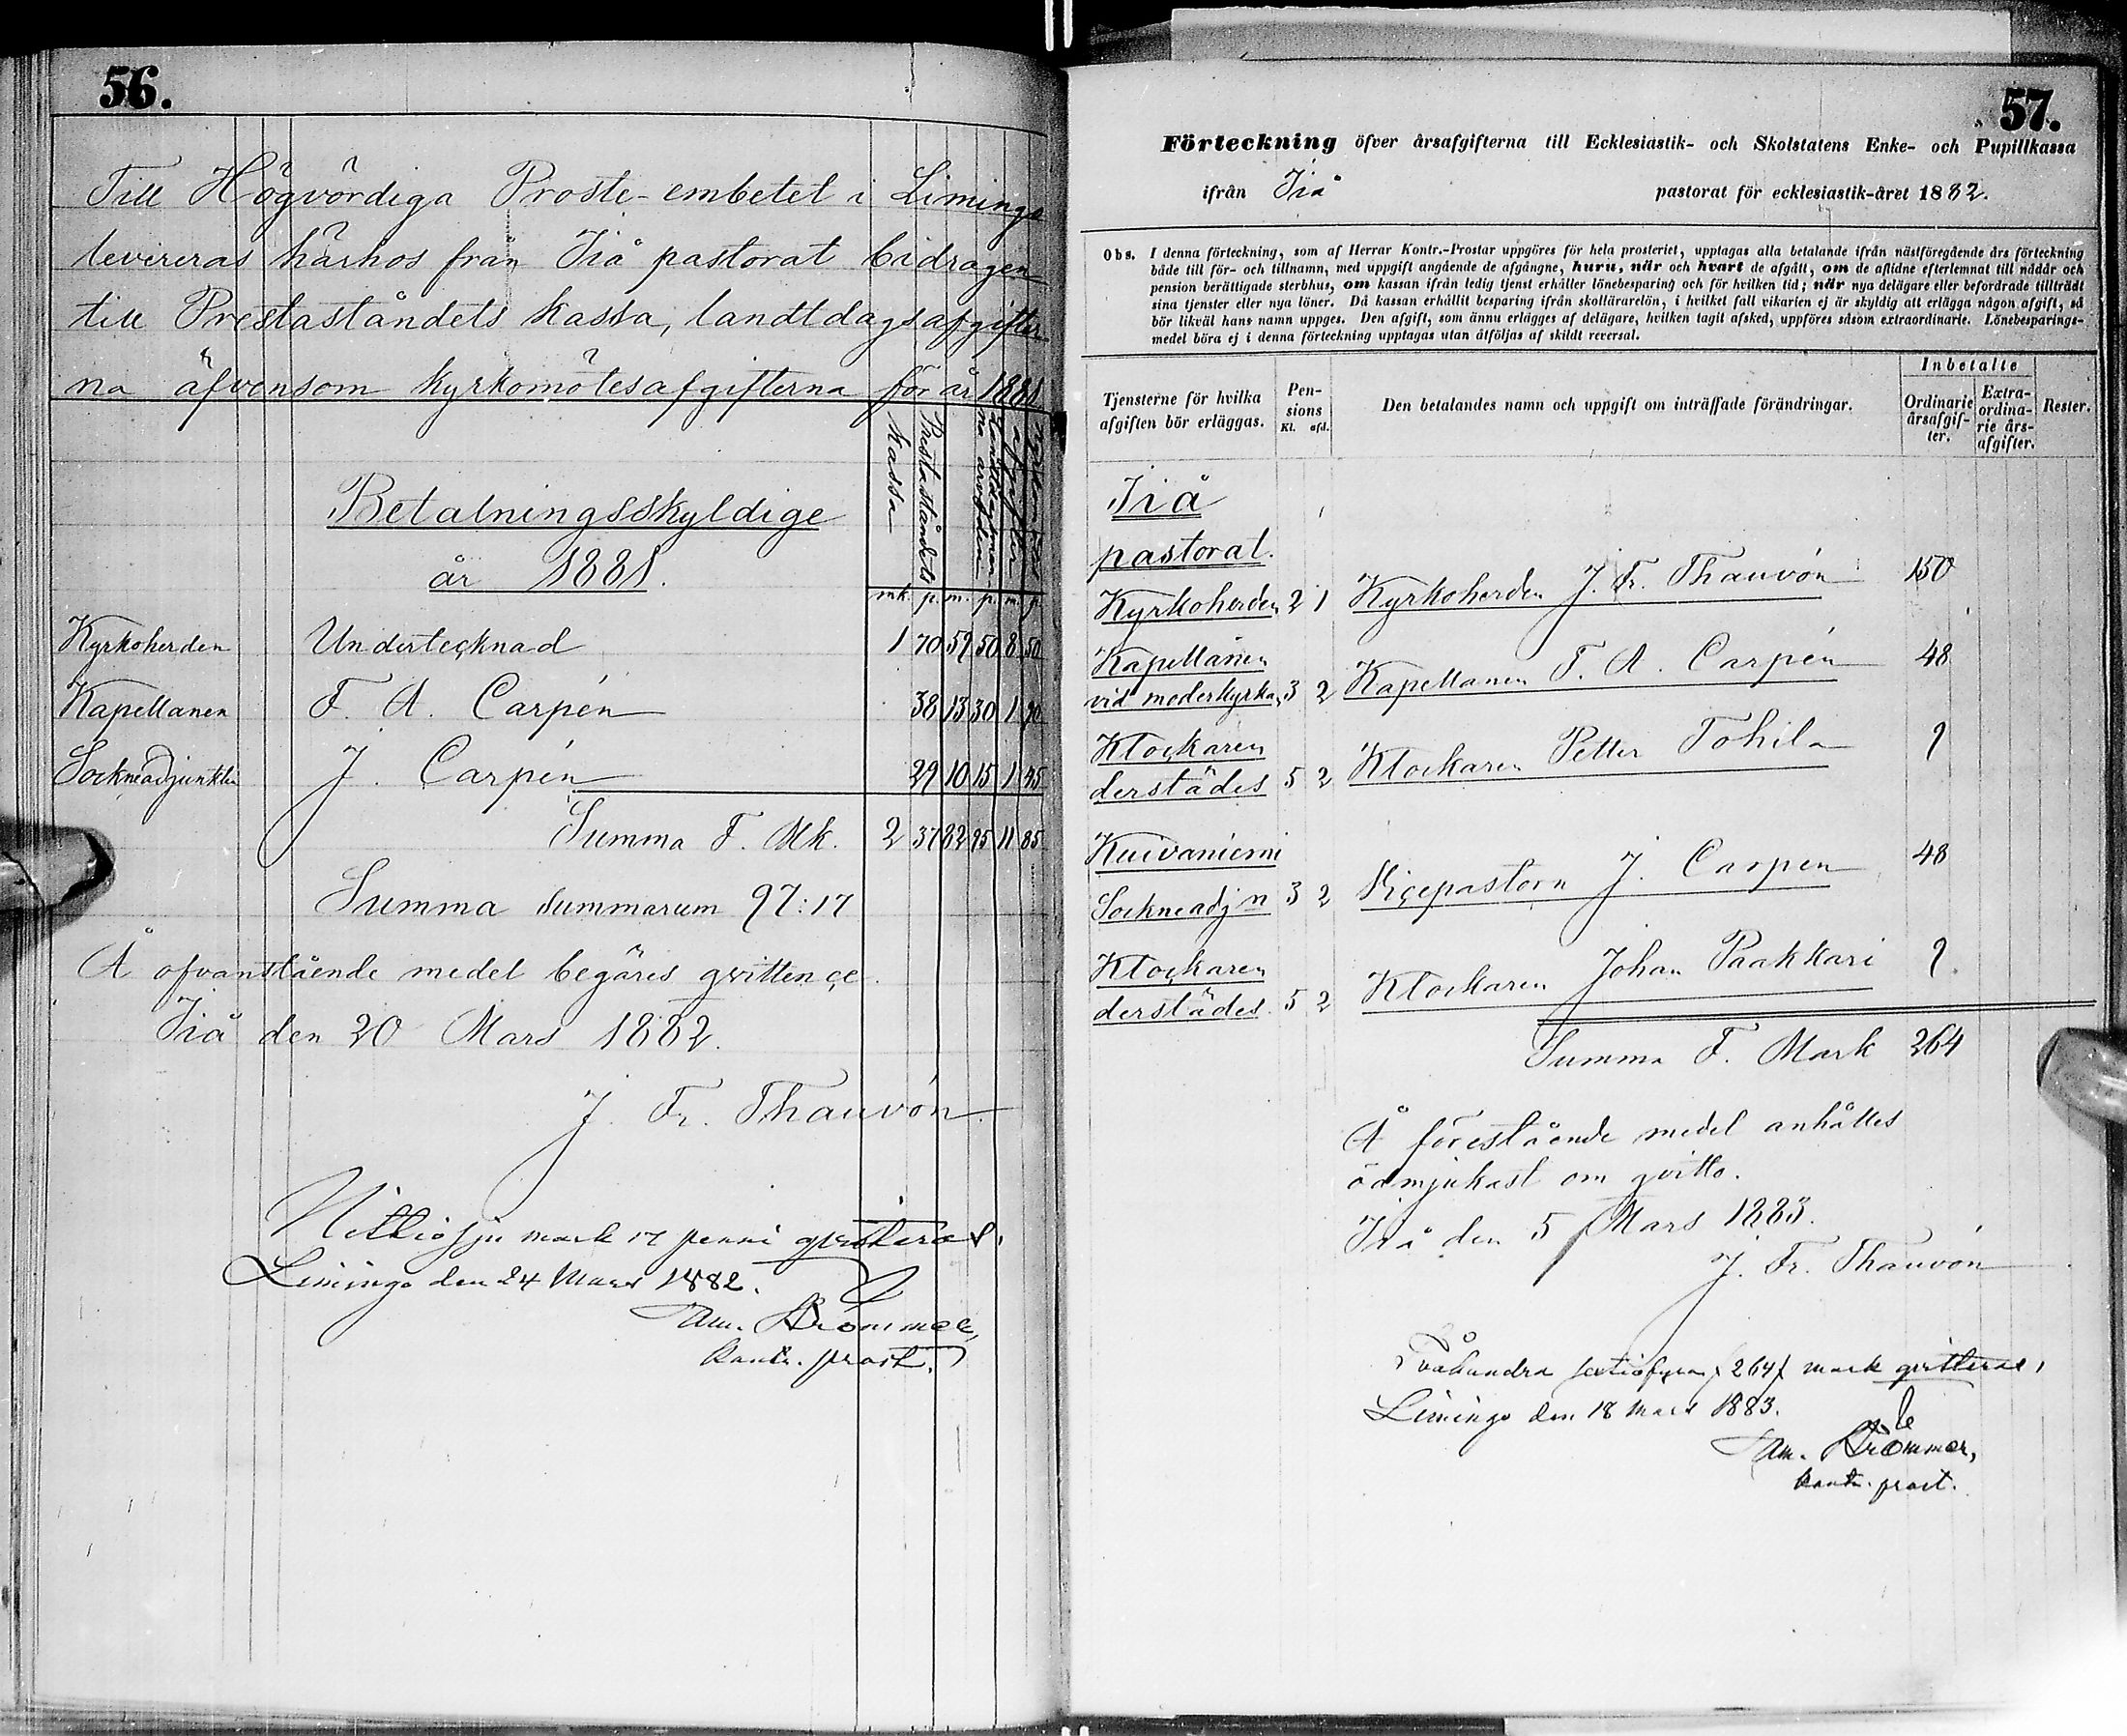 56.
Till Högvördiga Proste-embetet i Limingo
levereras härhos från Iiå pastorat bidragen
till Prestaståndets kassa, landtdagsafgifter-
na äfvensom kyrkomötesafgifterna för år 1881
Prestaståndets kassa
Betalningsskyldige
år 1881.
mk. p. m. p. m. p.
Kyrkoherden Undertecknad 1 70 59 50 8 50
Kapellanen F. A. Carpén 38 13 30 1 90
Sockneadjunkten J. Carpén 29 10 15 1 45
Summa F. Mk. 2 37 82 95 11 85
Summa summarum 97:17
Å ofvanstående medel begäres qvittence.
Iiå den 20 Mars 1882.
J. Fr. Thauvón
Nittiosju mark 17 penni qvitteras,
Limingo den 24 Mars 1882.
Kontr. prost.
57.
Förteckning öfver årsafgifterna till Ecklesiastik- och Skolstatens Enke- och Pupillkassa
ifrån Iiå pastorat för ecklesiastik-året 1882.
Obs. I denna förteckning, som af Herrar Kontr.-Prostar uppgöres för hela prosteriet, upptagas alla betalande ifrån nästföregående års förteckning
både till för- och tillnamn, med uppgift angående de afgångne, huru, när och hvart de afgått, om de aflidne efterlemnat till nådår och
pension berättigade sterbhus, om kassan ifrån ledig tjenst erhåller lönebesparing och för hvilken tid; när nya delägare eller befordrade tillträdt
sina tjenster eller nya löner. Då kassan erhållit besparing ifrån skollärarelön, i hvilket fall vikarien ej är skyldig att erlägga någon afgift, så
bör likväl hans namn uppges. Den afgift, som ännu erlägges af delägare, hvilken tagit afsked, uppföres såsom extraordinarie. Lönebesparings-
medel böra ej i denna förteckning upptagas utan åtföljas af skildt reversal.
Tjensterne för hvilka afgiften bör erläggas.
Pensions Kl. afd.
Den betalandes namn och uppgift om inträffade förändringar.
Inbetalte
Ordinarie årsafgifter.
Extraordinarie årsafgifter.
Rester.
Iiå
pastorat.
Kyrkoherden 2 1 Kyrkoherden J. Fr. Thauvón 150
Kapellanen
vid moderkyrkan 3 2 Kapellanen F. A. Carpén 48
Klockaren
derstädes 5 2 Klockaren Petter Tohila 9
Kuivaniemi
Sockneadj:n 3 2 Vicepastorn J. Carpen 48
Klockaren
derstädes. 5 2 Klockaren Johan Paakkari 9.
Summa F. Mark 264
Å förestående medel anhålles
ödmjukast om qvitto.
Iiå den 5 Mars 1883.
J. Fr. Thauvón
Tvåhundra sextiofyra (264) mark qvitteras,
Limingo den 18 Mars 1883.
Kontr. prost.